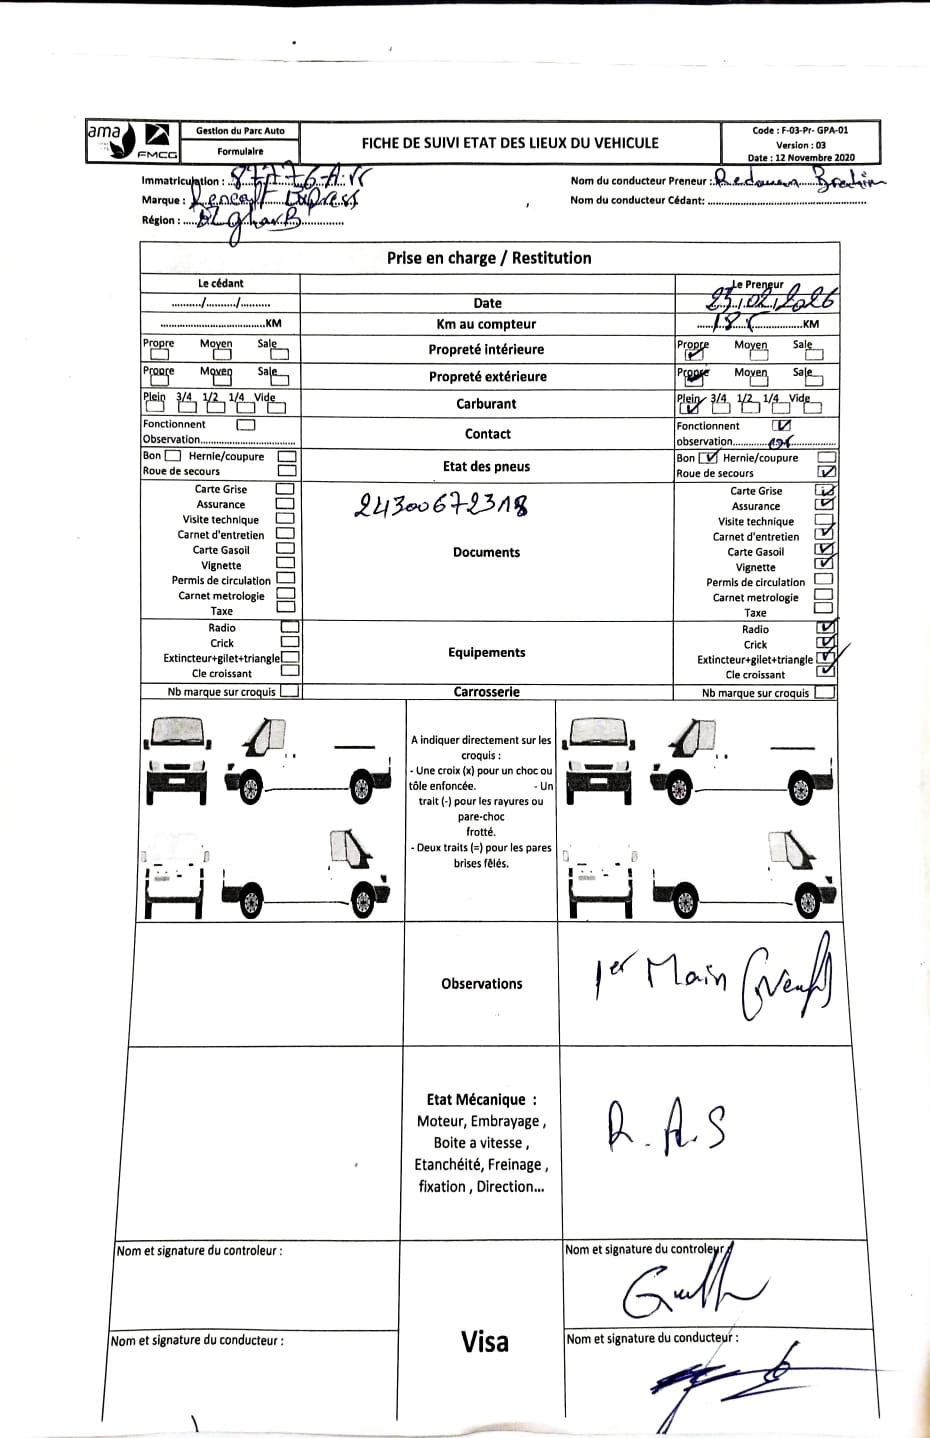 ama
FMCG
Gestion du Parc Auto
Formulaire
FICHE DE SUIVI ETAT DES LIEUX DU VEHICULE
Code : F-03-Pr- GPA-01
Version : 03
Date : 12 Novembre 2020
Immatriculation :
Marque : Renault Express
Région : EL gharB
Nom du conducteur Preneur : Redouan Brahim
Nom du conducteur Cédant:
Prise en charge / Restitution
Le cédant
Le Preneur
........../........../.......... Date 23/02/2026
KM Km au compteur KM
Propre Moyen Sale Propreté intérieure Propre Moyen Sale
Propre Moyen Sale Propreté extérieure Propre Moyen Sale
Plein 3/4 1/2 1/4 Vide Carburant Plein 3/4 1/2 1/4 Vide
Fonctionnent Contact Fonctionnent
Observation observation
Bon Hernie/coupure Etat des pneus Bon Hernie/coupure
Roue de secours Roue de secours
24300672318
Documents
Carte Grise Carte Grise
Assurance Assurance
Visite technique Visite technique
Carnet d'entretien Carnet d'entretien
Carte Gasoil Carte Gasoil
Vignette Vignette
Permis de circulation Permis de circulation
Carnet metrologie Carnet metrologie
Taxe Taxe
Radio Radio
Crick Crick
Equipements
Extincteur+gilet+triangle Extincteur+gilet+triangle
Cle croissant Cle croissant
Nb marque sur croquis Carrosserie Nb marque sur croquis
A indiquer directement sur les
croquis :
- Une croix (x) pour un choc ou
tôle enfoncée. - Un
trait (-) pour les rayures ou
pare-choc
frotté.
- Deux traits (=) pour les pares
brises fêlés.
Observations 1er Main (Neuf)
Etat Mécanique :
Moteur, Embrayage ,
Boite a vitesse ,
Etanchéité, Freinage ,
fixation , Direction...
R.A.S
Nom et signature du controleur : Nom et signature du controleur
Visa
Nom et signature du conducteur : Nom et signature du conducteur :